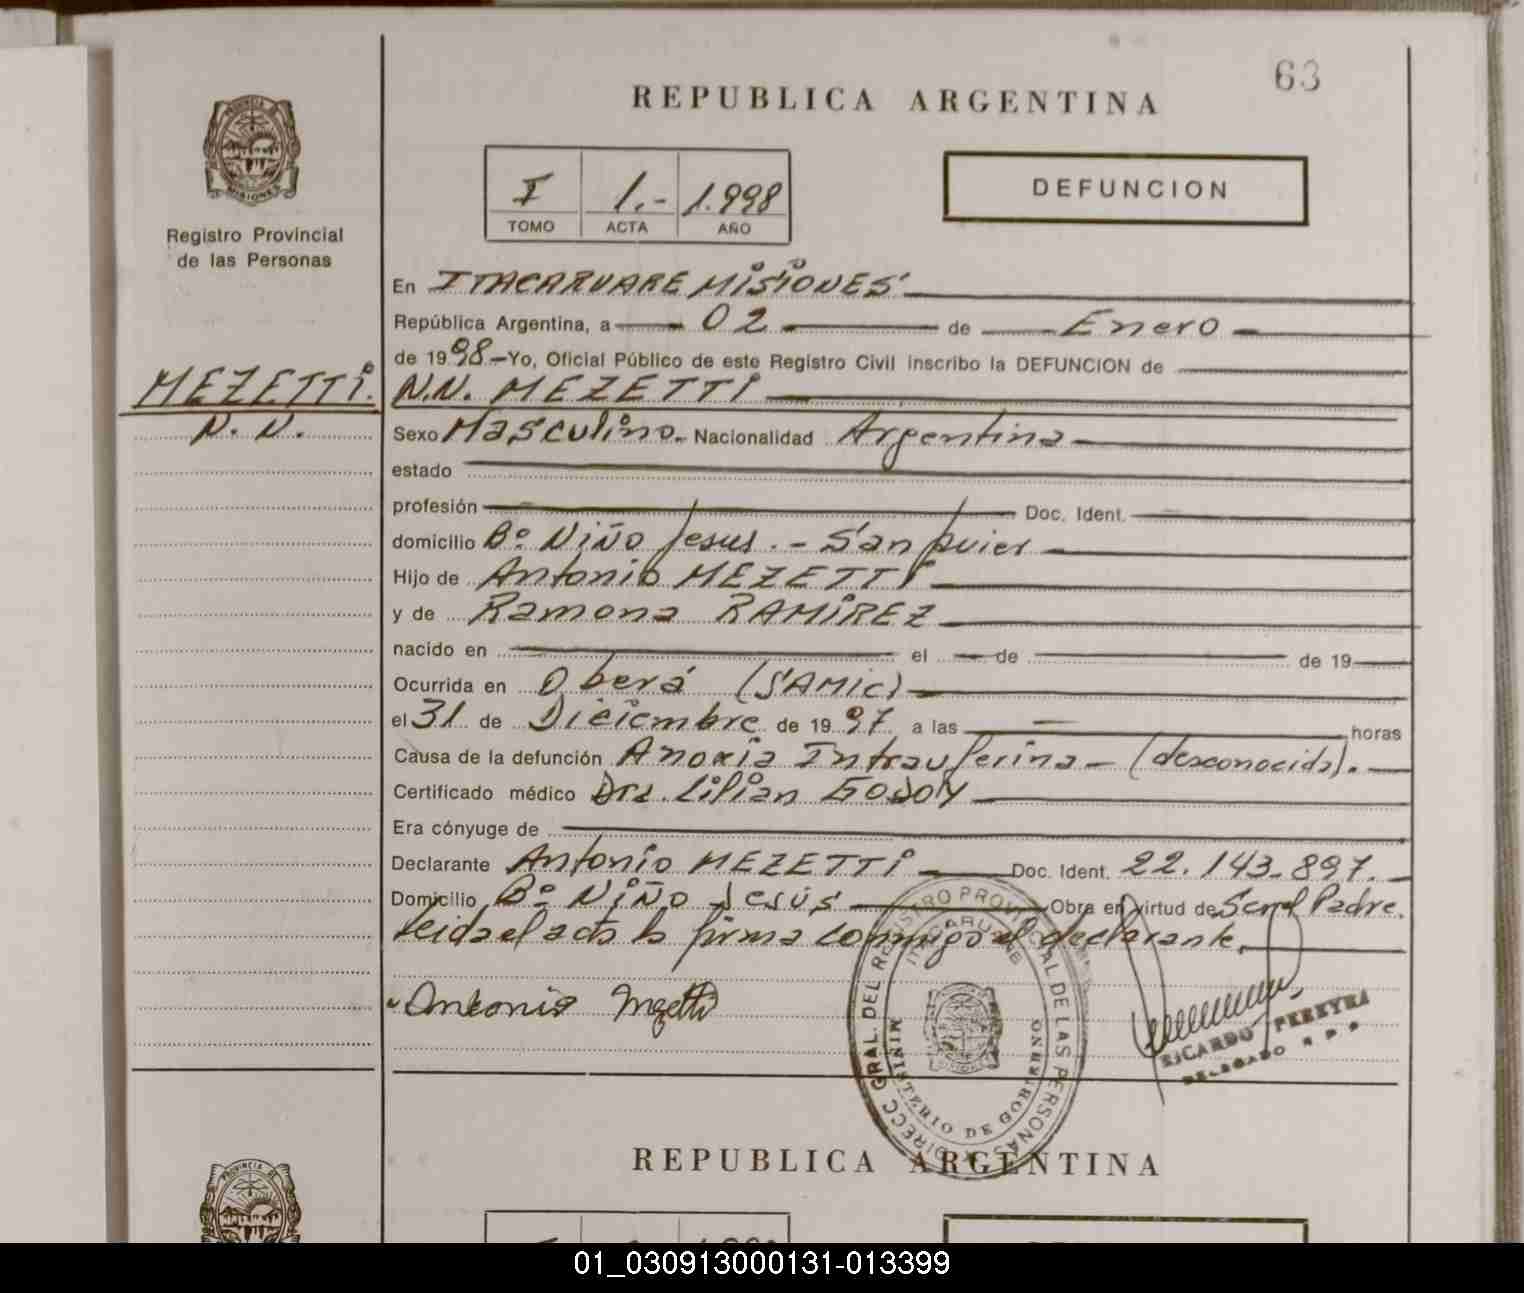 63
REPUBLICA ARGENTINA
PROVINCIA DE
MISIONES
Registro Provincial
de las Personas
I 1.- 1.998
TOMO ACTA AÑO
DEFUNCION
En ITACARUARE MISIONES
República Argentina, a 02 de Enero
de 1998.- Yo, Oficial Público de este Registro Civil inscribo la DEFUNCION de
MEZETTI. N.N. MEZETTI
N. N.
Sexo Masculino. Nacionalidad Argentina
estado
profesión Doc. Ident.
domicilio Bº Niño Jesus. - San Javier
Hijo de Antonio MEZETTI
y de Ramona RAMIREZ
nacido en el de de 19
Ocurrida en Oberá (SAMIC)
el 31 de Diciembre de 1997 a las horas
Causa de la defunción Anoxia Intrauterina - (desconocida).
Certificado médico Dra. Lilian GODOY
Era cónyuge de
Declarante Antonio MEZETTI Doc. Ident. 22.143.897.
Domicilio Bº Niño Jesús Obra en virtud de Ser el Padre.
Leida el acta la firma conmigo el declarante.
Antonio Mezetti
DIRECC GRAL. DEL REGISTRO PROVINCIAL DE LAS PERSONAS
ITACARUARE
MINISTERIO DE GOBIERNO
MISIONES
RICARDO PEREYRA
DELEGADO R P P
REPUBLICA ARGENTINA
PROVINCIA DE
01_030913000131-013399